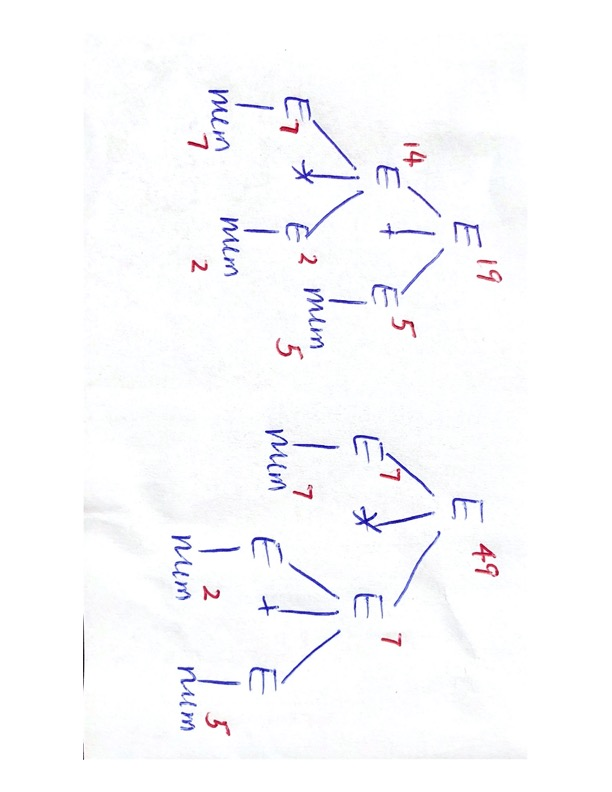 E 19
14 E + E 5
E 7 * E 2 num 5
num 7 num 2
E 49
E 7 * E 7
num 7 E + E
num 2 num 5